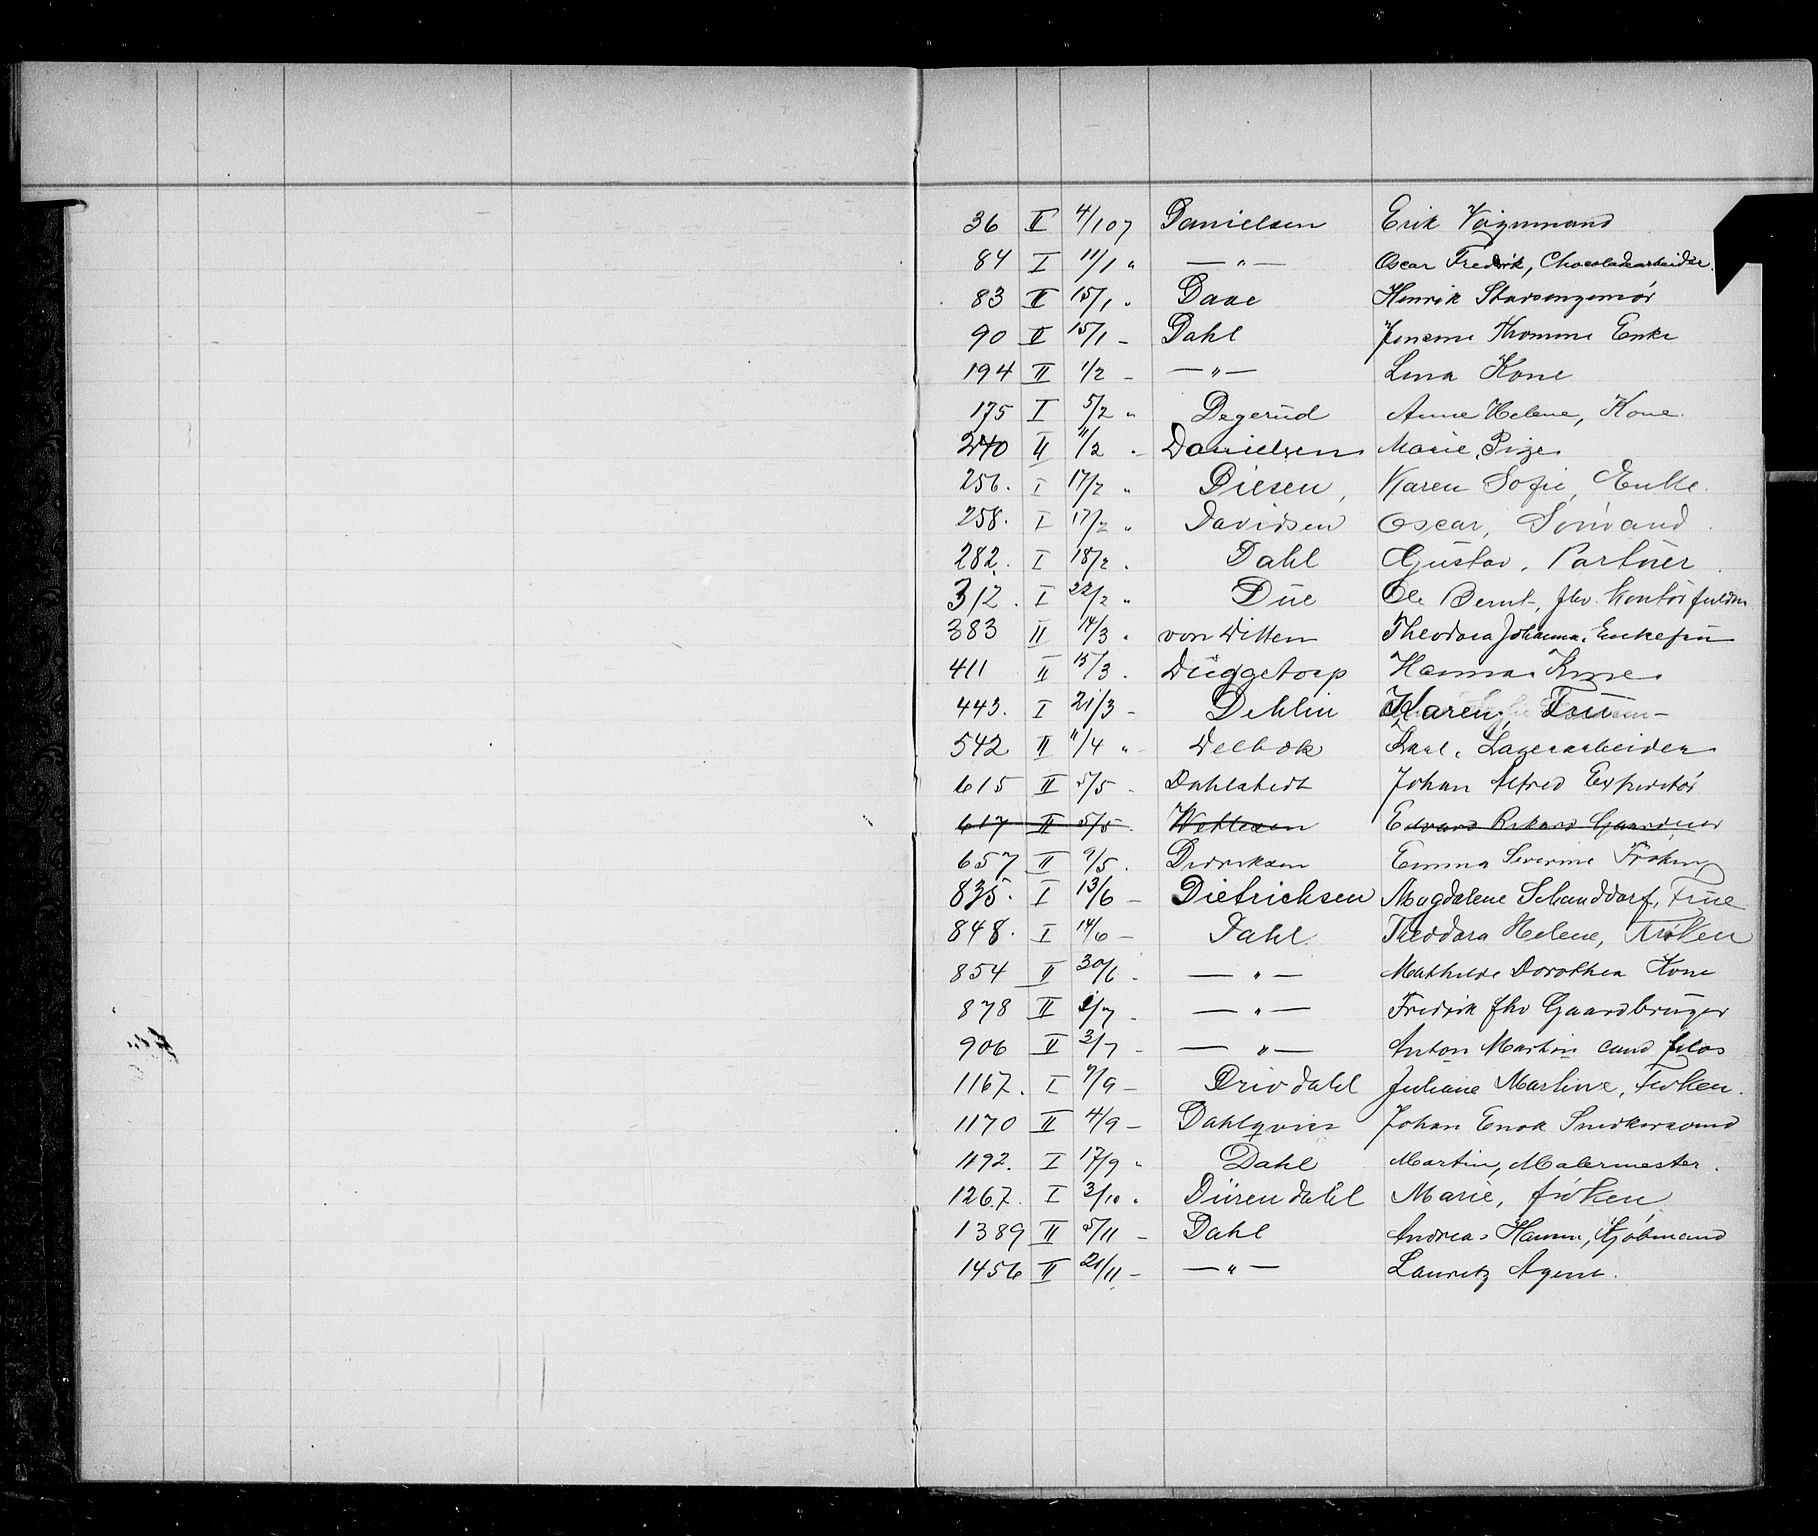 36 II 4/1 07 Danielsen Erik Vognmand
84 I 11/1 " —"— Oscar Fredrik, Chocoladearbeider.
83 II 15/1 . Daae Henrik Stadsengeniør
90 II 15/1 – Dahl Enke
194 II 1/2 – —"— Lina Kone
175 I 5/2 " Degerud Anne Helene, Kone.
240 II 11/2 " Danielsen Marie, Pige
256. I 17/2 " Diesen, Karen Sofie, Enke.
258. I 17/2 " Davidsen Oscar, Sömand.
282. I 18/2 . Dahl Gustav, Partner.
312. I 22/2 " Düe Ole Bernt, fhv. Kontorfuldm
383 II 14/3 . von Ditten Theodora Johanna, Enkefru
411 II 15/3 . Düggetorp Hanna Kone
443. I 21/3 – Dehlin Karen, Frü –
542 II 11/4 " Deebok Karl, Lagerarbeider
615 II 5/5 . Dahlstedt Johan Alfred Expeditör
617 II 5/5 . Edvard Rikard Gaardeier
657 II 9/5 . Didriksen Emma Severine Frøken
835. I 13/6 – Dietrichsen Magdalene Schanddorf, Frue
848. I 14/6 – Dahl. Theodora Helene, Frøken
854 II 30/6 . —"— Mathilde Dorothea Kone
878 II 1/7 . —"— Fredrik fhv Gaardbrüger
906 II 3/7 – —"— Anton Martin cand filos
1167. I 9/9 – Drivdahl Juliane Martine, Frøken.
1170 II 4/9 – Dahlqvist Johan Enok Snedkersvend
1192. I 17/9 " Dahl Martin, Malermester.
1267. I 3/10 . Dürendahl Marie, frøken
1389 II 5/11 – Dahl Andreas Hamm, Kjöbmand
1456 II 21/11 – —"— Lauritz Agent.